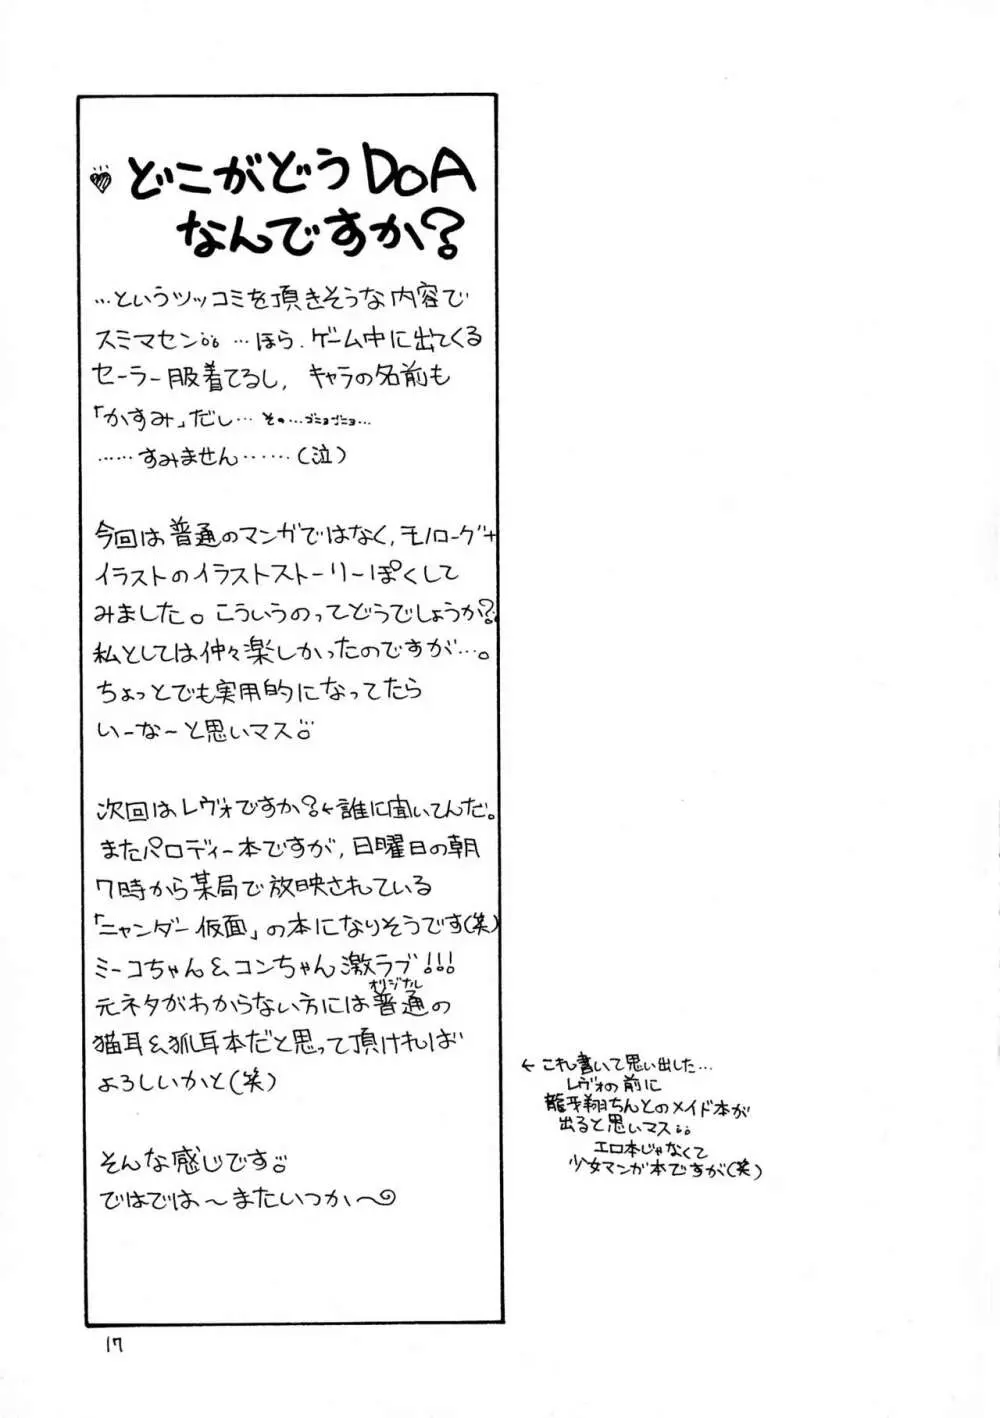 どこがどうDOA
なんですか?
…というツッコミを頂きそうな内容で
スミマセン… …ほら、ゲーム中に出てくる
セーラー服着てるし、キャラの名前も
「かすみ」だし… その…ゴニョゴニョ…
……すみません……(泣)
今回は普通のマンガではなく、モノローグ+
イラストのイラストストーリーぽくして
みました。こういうのってどうでしょうか?
私としては仲々楽しかったのですが…。
ちょっとでも実用的になってたら
いーなーと思いマス
次回はレヴォですか?←誰に聞いてんだ。
またパロディー本ですが、日曜日の朝
7時から某局で放映されている
「ニャンダー仮面」の本になりそうです(笑)
ミーコちゃん&コンちゃん激ラブ!!!
オリジナル
元ネタがわからない方には普通の
猫耳&狐耳本だと思って頂ければ
よろしいかと(笑)
そんな感じです
ではでは〜またいつか〜
17
←これ書いて思い出した…
レヴォの前に
龍牙翔ちんとのメイド本が
出ると思いマス
エロ本じゃなくて
少女マンガ本ですが(笑)